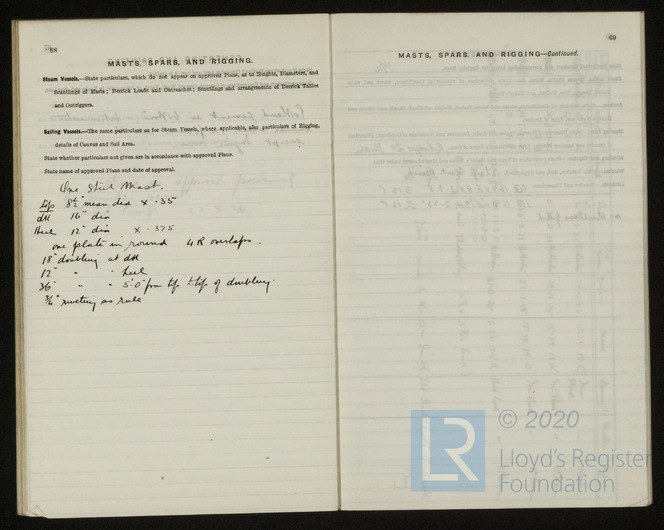 68
MASTS, SPARS, AND RIGGING.
Steam Vessels.—State particulars, which do not appear on approved Plans, as to Heights, Diameters, and
Scantlings of Masts; Derrick Loads and Outreaches; Scantlings and arrangements of Derrick Tables
and Outriggers.
Sailing Vessels.—The same particulars as for Steam Vessels, where applicable, also particulars of Rigging,
details of Canvas and Sail Area.
State whether particulars not given are in accordance with approved Plans.
State name of approved Plans and date of approval.
One Steel Mast.
top 8½" mean dia x .35
dk 16" dia
Heel 12" dia x .375
one plate in round 4R overlaps.
18" doubling at dk
12" " " heel
36" " " 5'.0" from top to top of doubling.
¾" riveting as rule
69
MASTS, SPARS, AND RIGGING—Continued.
LR
© 2020
Lloyd's Register
Foundation